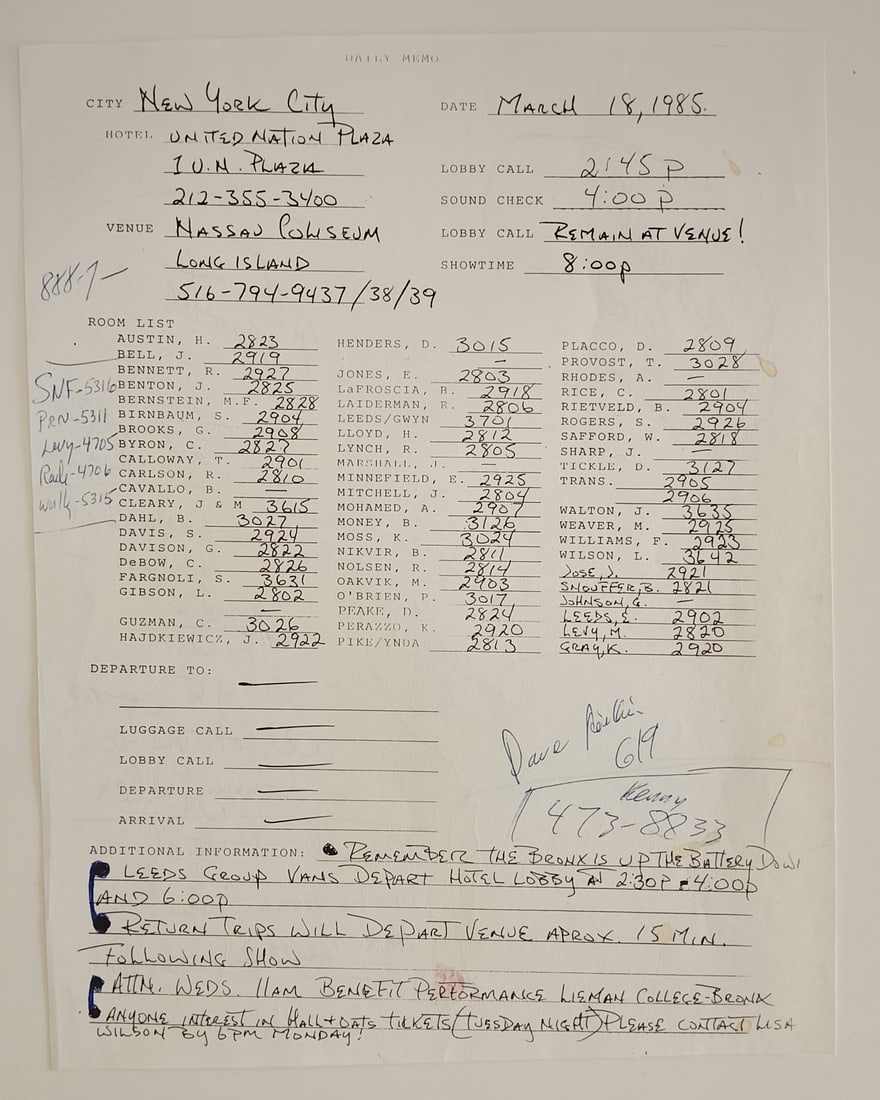 DAILY MEMO
CITY New York City
DATE MARCH 18, 1985.
HOTEL UNITED NATION PLAZA
1 U.N. PLAZA
LOBBY CALL 2:45 p
212-355-3400
SOUND CHECK 4:00 p
VENUE NASSAU COLISEUM
LOBBY CALL REMAIN AT VENUE!
LONG ISLAND
SHOWTIME 8:00p
888-7
516-794-9437/38/39
ROOM LIST
AUSTIN, H. 2823
BELL, J. 2919
BENNETT, R. 2927
SNF-5316 BENTON, J. 2825
BERNSTEIN, M.F. 2828
PRN-5311 BIRNBAUM, S. 2904
BROOKS, G. 2908
Levy-4705 BYRON, C. 2827
CALLOWAY, T. 2901
4706 CARLSON, R. 2810
CAVALLO, B. —
Wally-5315 CLEARY, J & M 3615
DAHL, B. 3027
DAVIS, S. 2924
DAVISON, G. 2822
DeBOW, C. 2826
FARGNOLI, S. 3631
GIBSON, L. 2802
—
GUZMAN, C. 3026
HAJDKIEWICZ, J. 2922
HENDERS, D. 3015
—
JONES, E. 2803
LaFROSCIA, B. 2918
LAIDERMAN, R. 2806
LEEDS/GWYN 3701
LLOYD, H. 2812
LYNCH, R. 2805
MARSHALL, J. —
MINNEFIELD, E. 2925
MITCHELL, J. 2804
MOHAMED, A. 2907
MONEY, B. 3126
MOSS, K. 3024
NIKVIR, B. 2811
NOLSEN, R. 2814
OAKVIK, M. 2903
O'BRIEN, P. 3017
PEAKE, D. 2824
PERAZZO, K. 2920
PIKE/YNDA 2813
PLACCO, D. 2809
PROVOST, T. 3028
RHODES, A. —
RICE, C. 2801
RIETVELD, B. 2904
ROGERS, S. 2926
SAFFORD, W. 2818
SHARP, J. —
TICKLE, D. 3127
TRANS. 2905
2906
WALTON, J. 3635
WEAVER, M. 2925
WILLIAMS, F. 2923
WILSON, L. 3642
JOSE, J. 2921
SNOUFFER, B. 2821
JOHNSON, G. —
LEEDS, E. 2902
LEVY, M. 2820
GRAY, K. 2920
DEPARTURE TO: —
LUGGAGE CALL —
LOBBY CALL —
DEPARTURE —
ARRIVAL —
Dave
619
Kenny
473-8833
ADDITIONAL INFORMATION: • REMEMBER THE BRONX IS UP THE BATTERY DOWN
• LEEDS GROUP VANS DEPART HOTEL LOBBY AT 2:30p 4:00p
AND 6:00p
• RETURN TRIPS WILL DEPART VENUE APROX. 15 MIN.
FOLLOWING SHOW
• ATTN. WEDS. 11AM BENEFIT PERFORMANCE LIEMAN COLLEGE-BRONX
• ANYONE INTEREST IN HALL + OATS TICKETS (TUESDAY NIGHT) PLEASE CONTACT LISA
WILSON BY 6PM MONDAY!